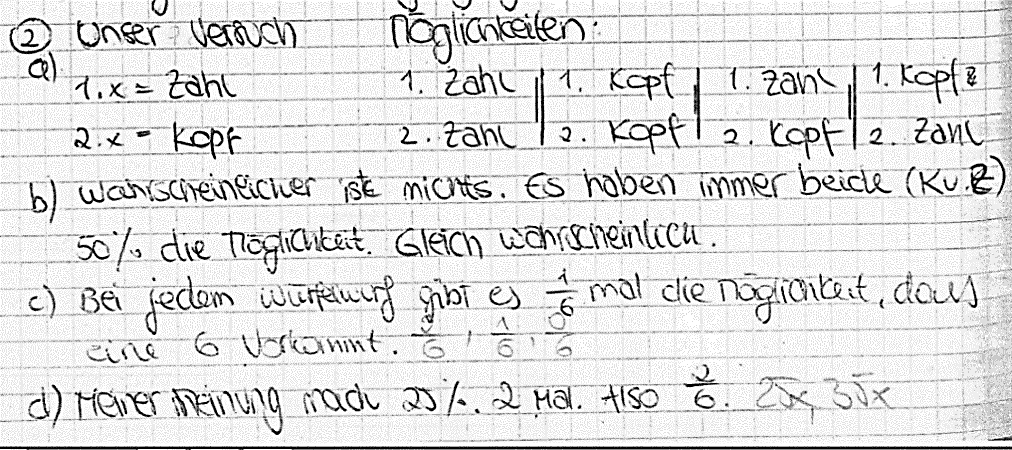 ② Unser Versuch Möglichkeiten:
a) 1. x = Zahl 1. Zahl || 1. Kopf | 1. Zahl || 1. Kopf
2. x = Kopf 2. Zahl || 2. Kopf | 2. Kopf || 2. Zahl
b) Wahrscheinlicher ist nichts. Es haben immer beide (K u. Z)
50% die Möglichkeit. Gleich wahrscheinlich.
c) Bei jedem Würfelwurf gibt es 1/6 mal die Möglichkeit, dass
eine 6 vorkommt. 1/6
d) Meiner Meinung nach 25%. 2 Mal. Also 2/6.